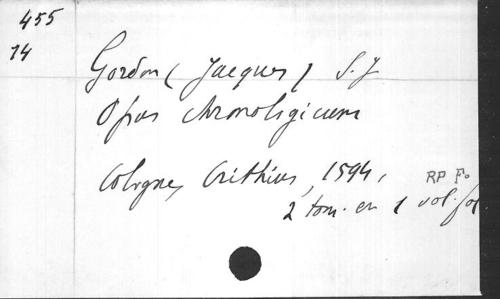 455
14
Gordon (Jacques) S.J
Opus chronologicum
Cologne, Crithius, 1594,
RP Fo
2 tom. en 1 vol. fol